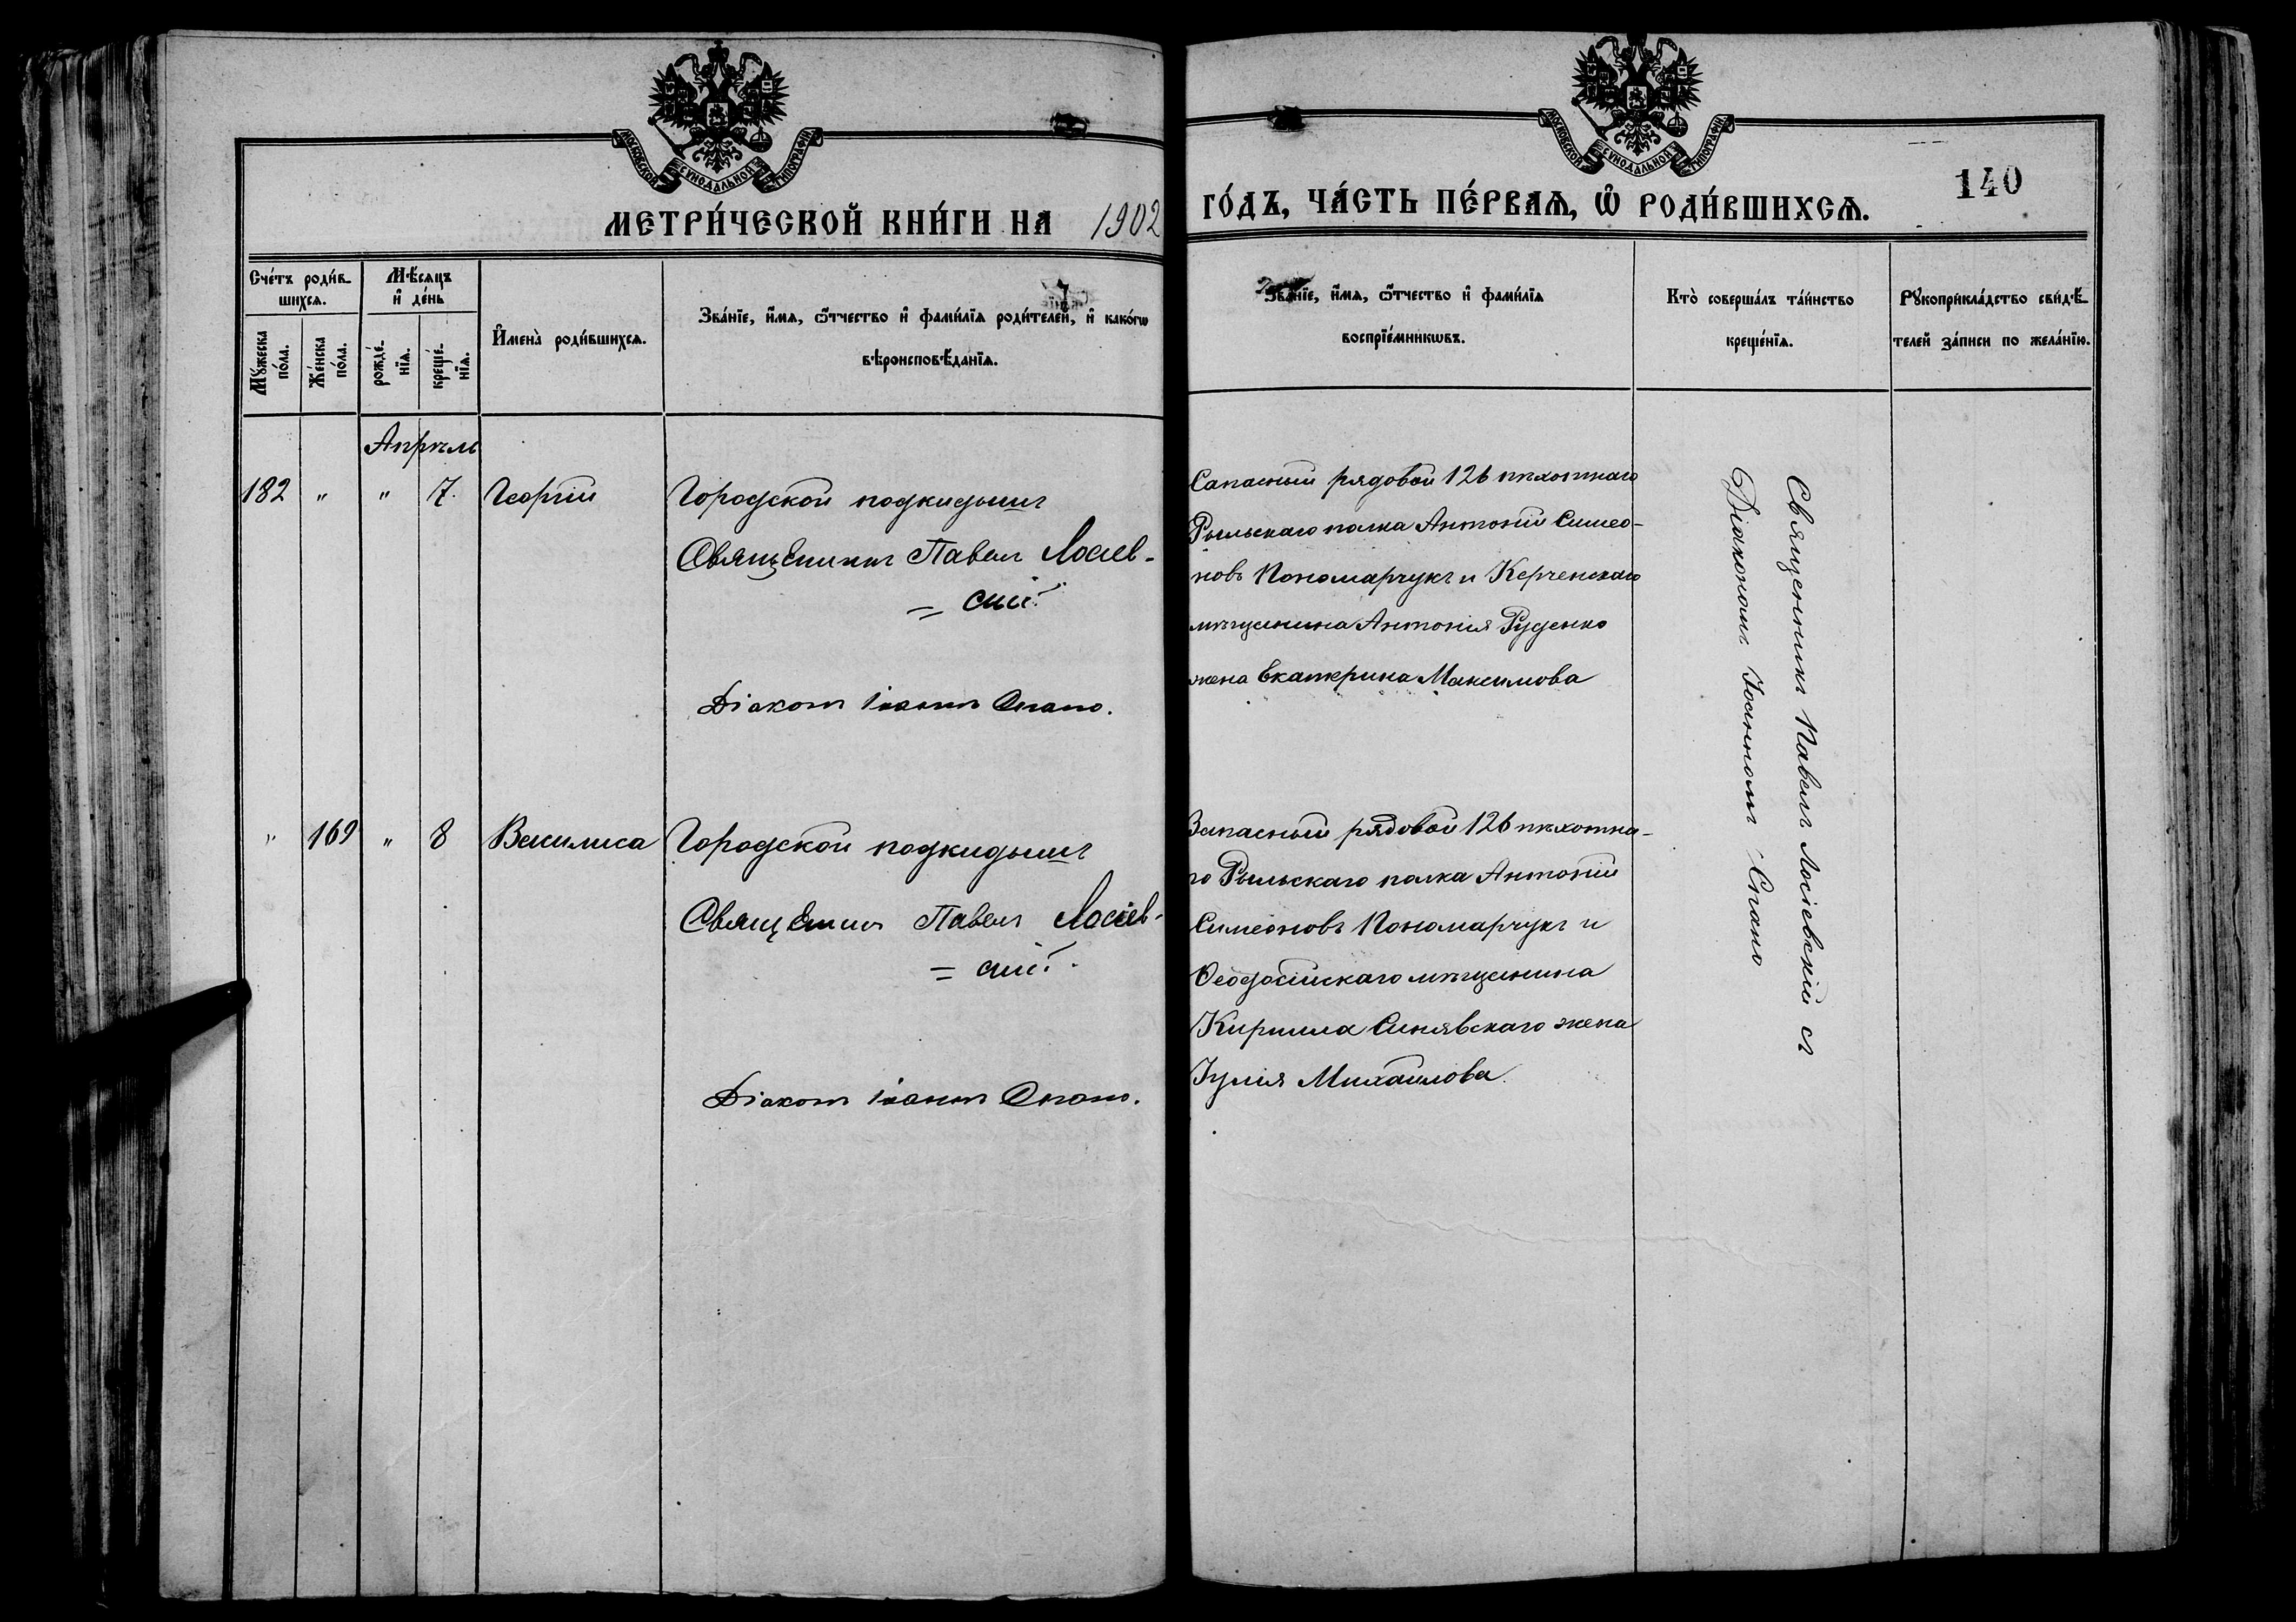 МОСКОВСКОЙ СѴНОДАЛЬНОЙ ТИПОГРАФІИ
МОСКОВСКОЙ СѴНОДАЛЬНОЙ ТИПОГРАФІИ
140
МЕТРИ́ЧЕСКОЙ КНИ́ГИ НА 1902 ГО́ДЪ, ЧА́СТЬ ПЕ́РВАѦ, Ѡ҆ РОДИ́ВШИХСѦ.
Сче́тъ роди́в-
шихсѧ.
Мꙋ́жеска
по́ла.
Же́нска
по́ла.
Мѣ́сѧцъ
и҆ де́нь
рожде́-
нїѧ.
креще́-
нїѧ.
И҆мена̀ роди́вшихсѧ.
Зва́нїе, и҆́мѧ, ѻ҆́тчество и҆ фами́лїѧ роди́телей, и҆ како́гѡ
вѣроисповѣ́данїѧ.
Зва́нїе, и҆́мѧ, ѻ҆́тчество и҆ фами́лїѧ
воспрїе́мникѡвъ.
Кто̀ соверша́лъ та́инство
креще́нїѧ.
Рꙋкоприкла́дство свидѣ́-
телей за́писи по жела́нїю.
Апрѣль
182 " " 7. Георгій
Городской подкидышъ
Священникъ Павелъ Лосіев-
= скій.
Діаконъ Іоаннъ Спано.
Запасный рядовой 126 пѣхотнаго
Рыльскаго полка Антоній Симео-
новъ Пономарчукъ и Керченскаго
мѣщанина Антонія Руденко
жена Екатерина Максимова
Священникъ Павелъ Лосіевскій съ
Діакономъ Іоанномъ Спано
" 169 " 8 Василиса
Городской подкидышъ
Священникъ Павелъ Лосіев-
= скій.
Діаконъ Іоаннъ Спано.
Запасный рядовой 126 пѣхотна-
го Рыльскаго полка Антоній
Симеоновъ Пономарчукъ и
Ѳеодосійскаго мѣщанина
Кирилла Синявскаго жена
Іулія Михайлова.